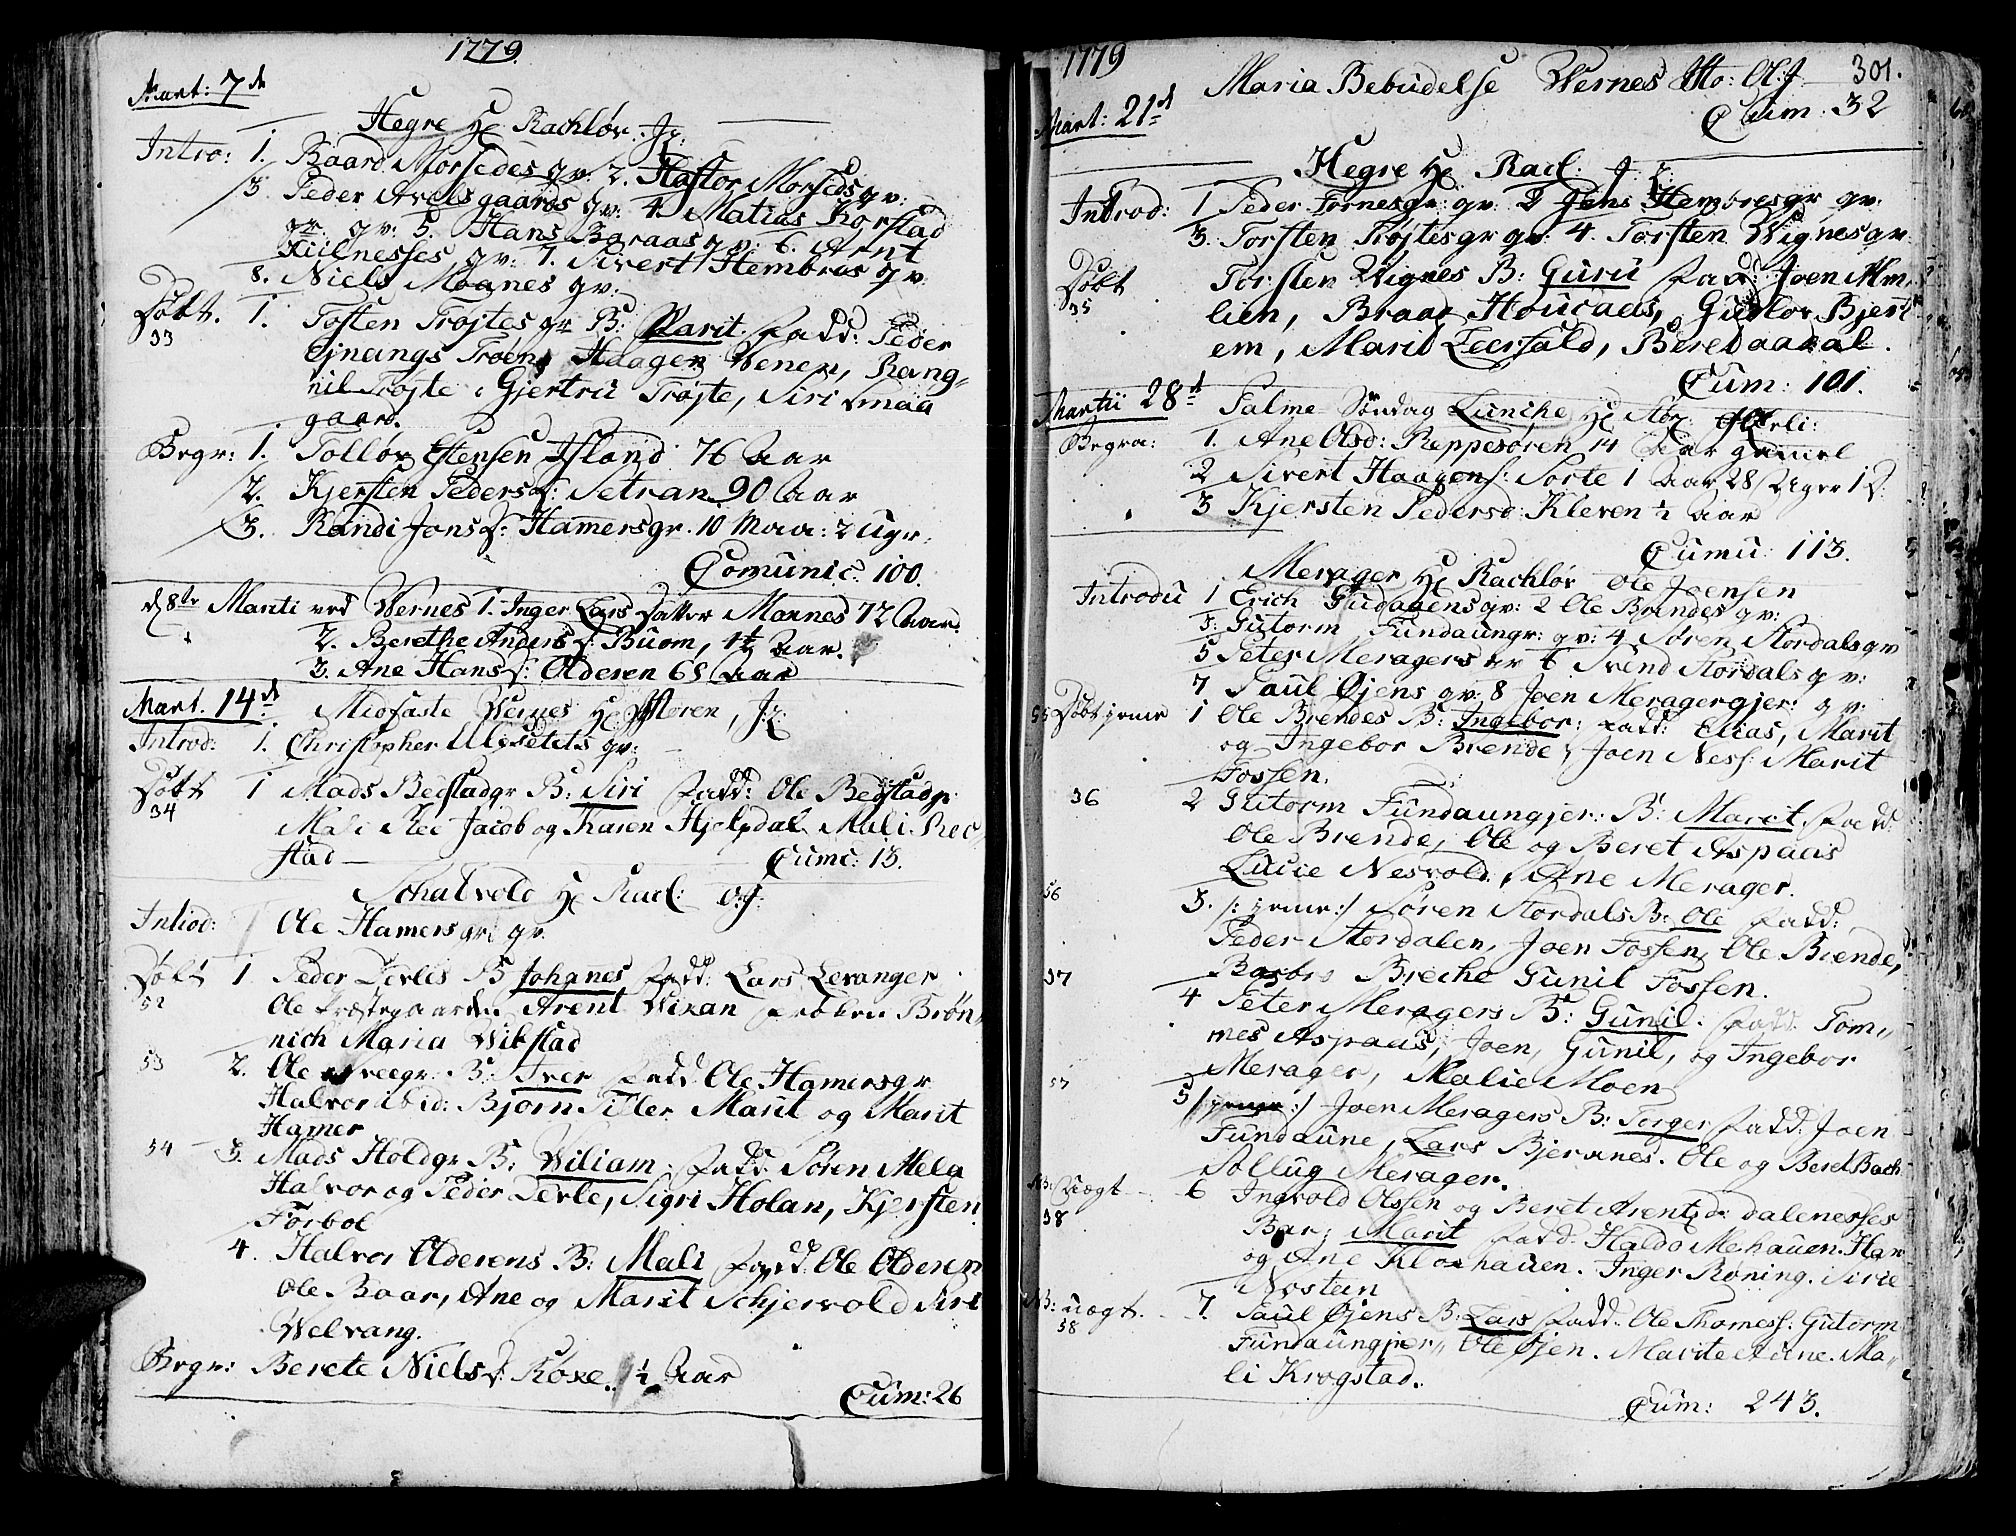 1779.
Mart: 7de
Hegre Hr Rachløv. J:
Intro: 1. Baard Morsedes qv. 2. Hastor Morseds qv:
3. Peder Avelsgaards qv: 4. Matias Korstad
gr. qv: 5. Hans Baraas qv: 6. Arnt
Kiilnesses qv: 7. Sivert Hembres qv.
8. Niels Moanes qv:
Døbt. 1. Tosten Trøjtes gr B: Marit. Fadd: Peder
33
Ejnangs Trøen, Haagen Wenen, Rang-
nil Trøjte, Gjertru Trøjte, Siri Smaa
gaard.
Begr: 1. Tolløv Estensen Island 76 Aar
2. Kjersten Peders D: Setran 90 Aar
3. Randi Jons D: Hamersgr. 10 Maa: 2 Ugr.
Comunic. 100.
d 8de Marti ved Wernes 1. Inger Lars Datter Mannes 72 Aar.
2. Berethe Anders D: Buom, 1½ Aar.
3. Ane Hans D: Olderen 68 Aar
Mart. 14de Midfaste Wernes Hr Støren, J:
Introd: 1. Christopher Ulsetets qv:
Døbt 1 Mads Bedstadgr B: Siri Fadd: Ole Bedstadgr.
34
Mali Ree Jacob og Karen Hjelpdal Mali Rec-
stad — Cumc: 13.
Schatvold Hr Racl: O:J:
Introd: Ole Hamersgr: qv.
Døbt 1 Peder Tevles B Johanes Fadd: Lars Levanger
52
Ole Præstegaarden Arent Wikan Frøken Brøn-
nich Maria Wikstad
53 2. Ole Sveegr. B: Iver Fadd Ole Hamersgr
Halvor ibid: Bjørn Tiller Marit og Marit
Hamer
54 3. Mads Holdgr B: Wiliam. Fadd. Søren Mela
Halvor og Peder Tevle, Sigri Holan, Kjersten
Forbol
4. Halvor Olderens B: Mali Fadd: Ole Olderen
Ole Baar, Ane og Marit Schjervold Siri
Welvang.
Begr: Berete Niels D: Roxe. 1½ Aar
Cum: 26
1779 301.
Maria Bebudelse Wernes Sto: O:J
Mart: 21de Cum: 32
Hegre Hr Racl. J:
Introd: 1 Peder Fornesgr. qv: 2 Jens Hembresgr qv.
3. Torsten Trøjtesgr qv: 4. Torsten Wignes qv.
Døbt Torsten Wignes B: Guru Fadd: Joen Alm-
35
lien, Braat Houcaas, Gudlov Bjert
em, Marit Leerfald, Beret aadal.
Cum: 101.
Martii 28de Palme Søndag Lunche Hr Stør:
Begra: 1. Ane Olsd: Reppesøren 14 Aar gamel
2 Sivert Haagens: Sorte 1 Aar 28 Uger 1 D.
3 Kjersten Pedersd: Kleven ½ Aar
Cumu: 113.
Merager Hr Rachløv Ole Joensen
Introdu 1 Erich Gudagens qv: 2 Ole Brendes qv:
3: Gutorm Fundaungr: qv: 4 Søren Stordals qv
5 Peter Meragers qv 6 Svend Stordals qv:
7 Paul Øjens qv: 8 Joen Meragergjer: qv:
55 Døbt hjeme 1 Ole Brendes B: Ingebor: Fadd: Elias, Marit
og Ingebor Brende, Joen Ness: Marit
Fossen.
36 2 Gutorm Fundaungjer: B: Marit. Fadd:
Ole Brende, Ole og Beret Aspaas
Lucie Nesvold, Ane Merager.
56 3. /: hjeme :/ Søren Stordals B: Ole Fadd:
Peder Stordalen, Joen Fossen, Ole Brende,
37 Breche Gunil Fossen.
4 Peter Meragers B: Gunil. Fadd. Tom-
mes Aspaas, Joen, Gunil, og Ingebor
Merager, Malie Moen
57 5 /: hjeme :/ Joen Meragers B: Torger Fadd: Joen
Fundaune, Lars Bjeranes. Ole og Beret Bach
Sollug Merager.
NB: Uægt 6 Ingvold Olssen og Beret Arentsd: dalenesses
38
Bar; Marit Fadd. Haldo Mehauen. Har
og Ane Kloxhauen. Inger Roning. Sirie
Nostein
NB: uægt. 7. Paul Øjens B: Lars Fadd: Ole Thomess: Gutorm
58
Fundaungjer, Ole Øjen. Marite Aune. Ma-
li Krogstad.
Cum: 243.